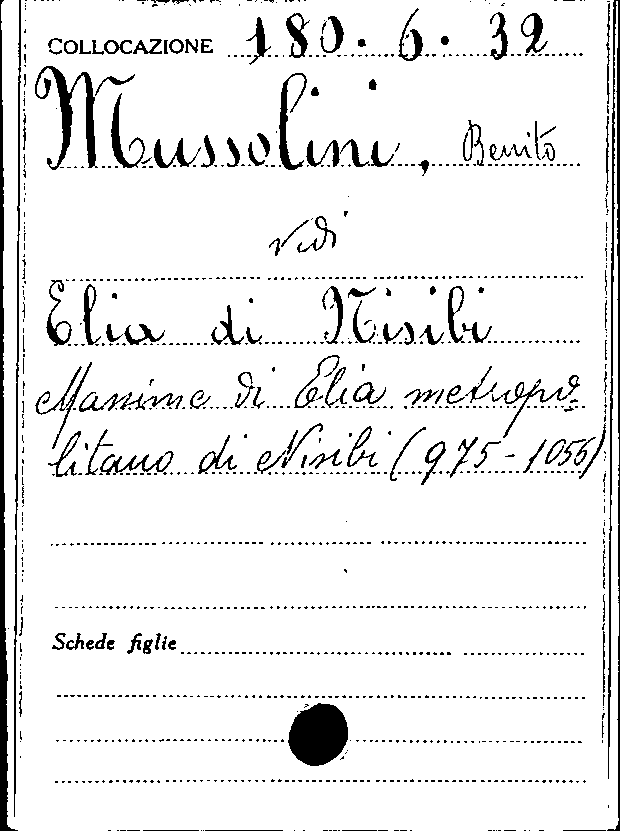 COLLOCAZIONE 180. 6. 32
Mussolini, Benito
vidi
Elia di Nisibi
Massime di Elia metropo-
litano di Nisibi (975-1056)
Schede figlie